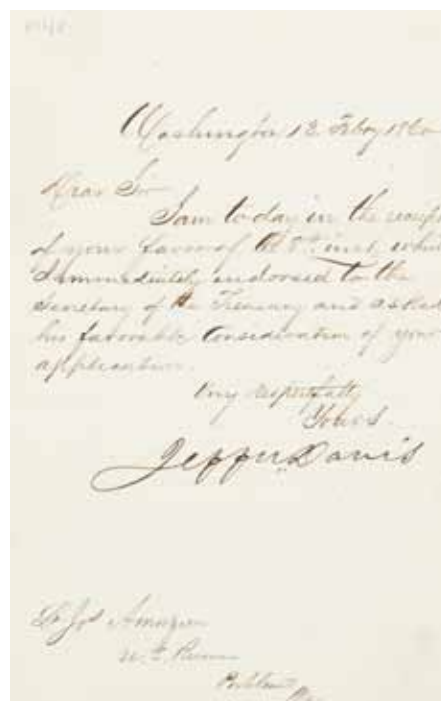 Washington 12 Feby 1860
Dear Sir
I am to day in the receipt
of your favor of the 8th inst. which
I immediately endorsed to the
Secretary of the Treasury and asked
his favorable consideration of your
application.
Very respectfully
Yours
Jeffn. Davis
Portland